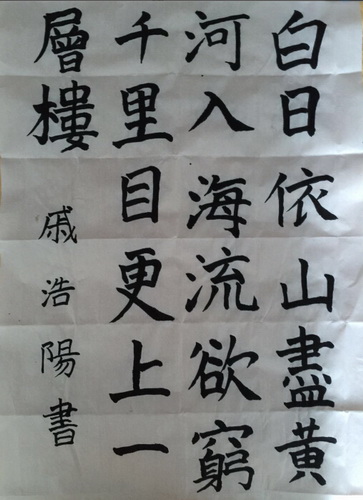 白日依山盡黃
河入海流欲窮
千里目更上一
層樓
戚浩陽書